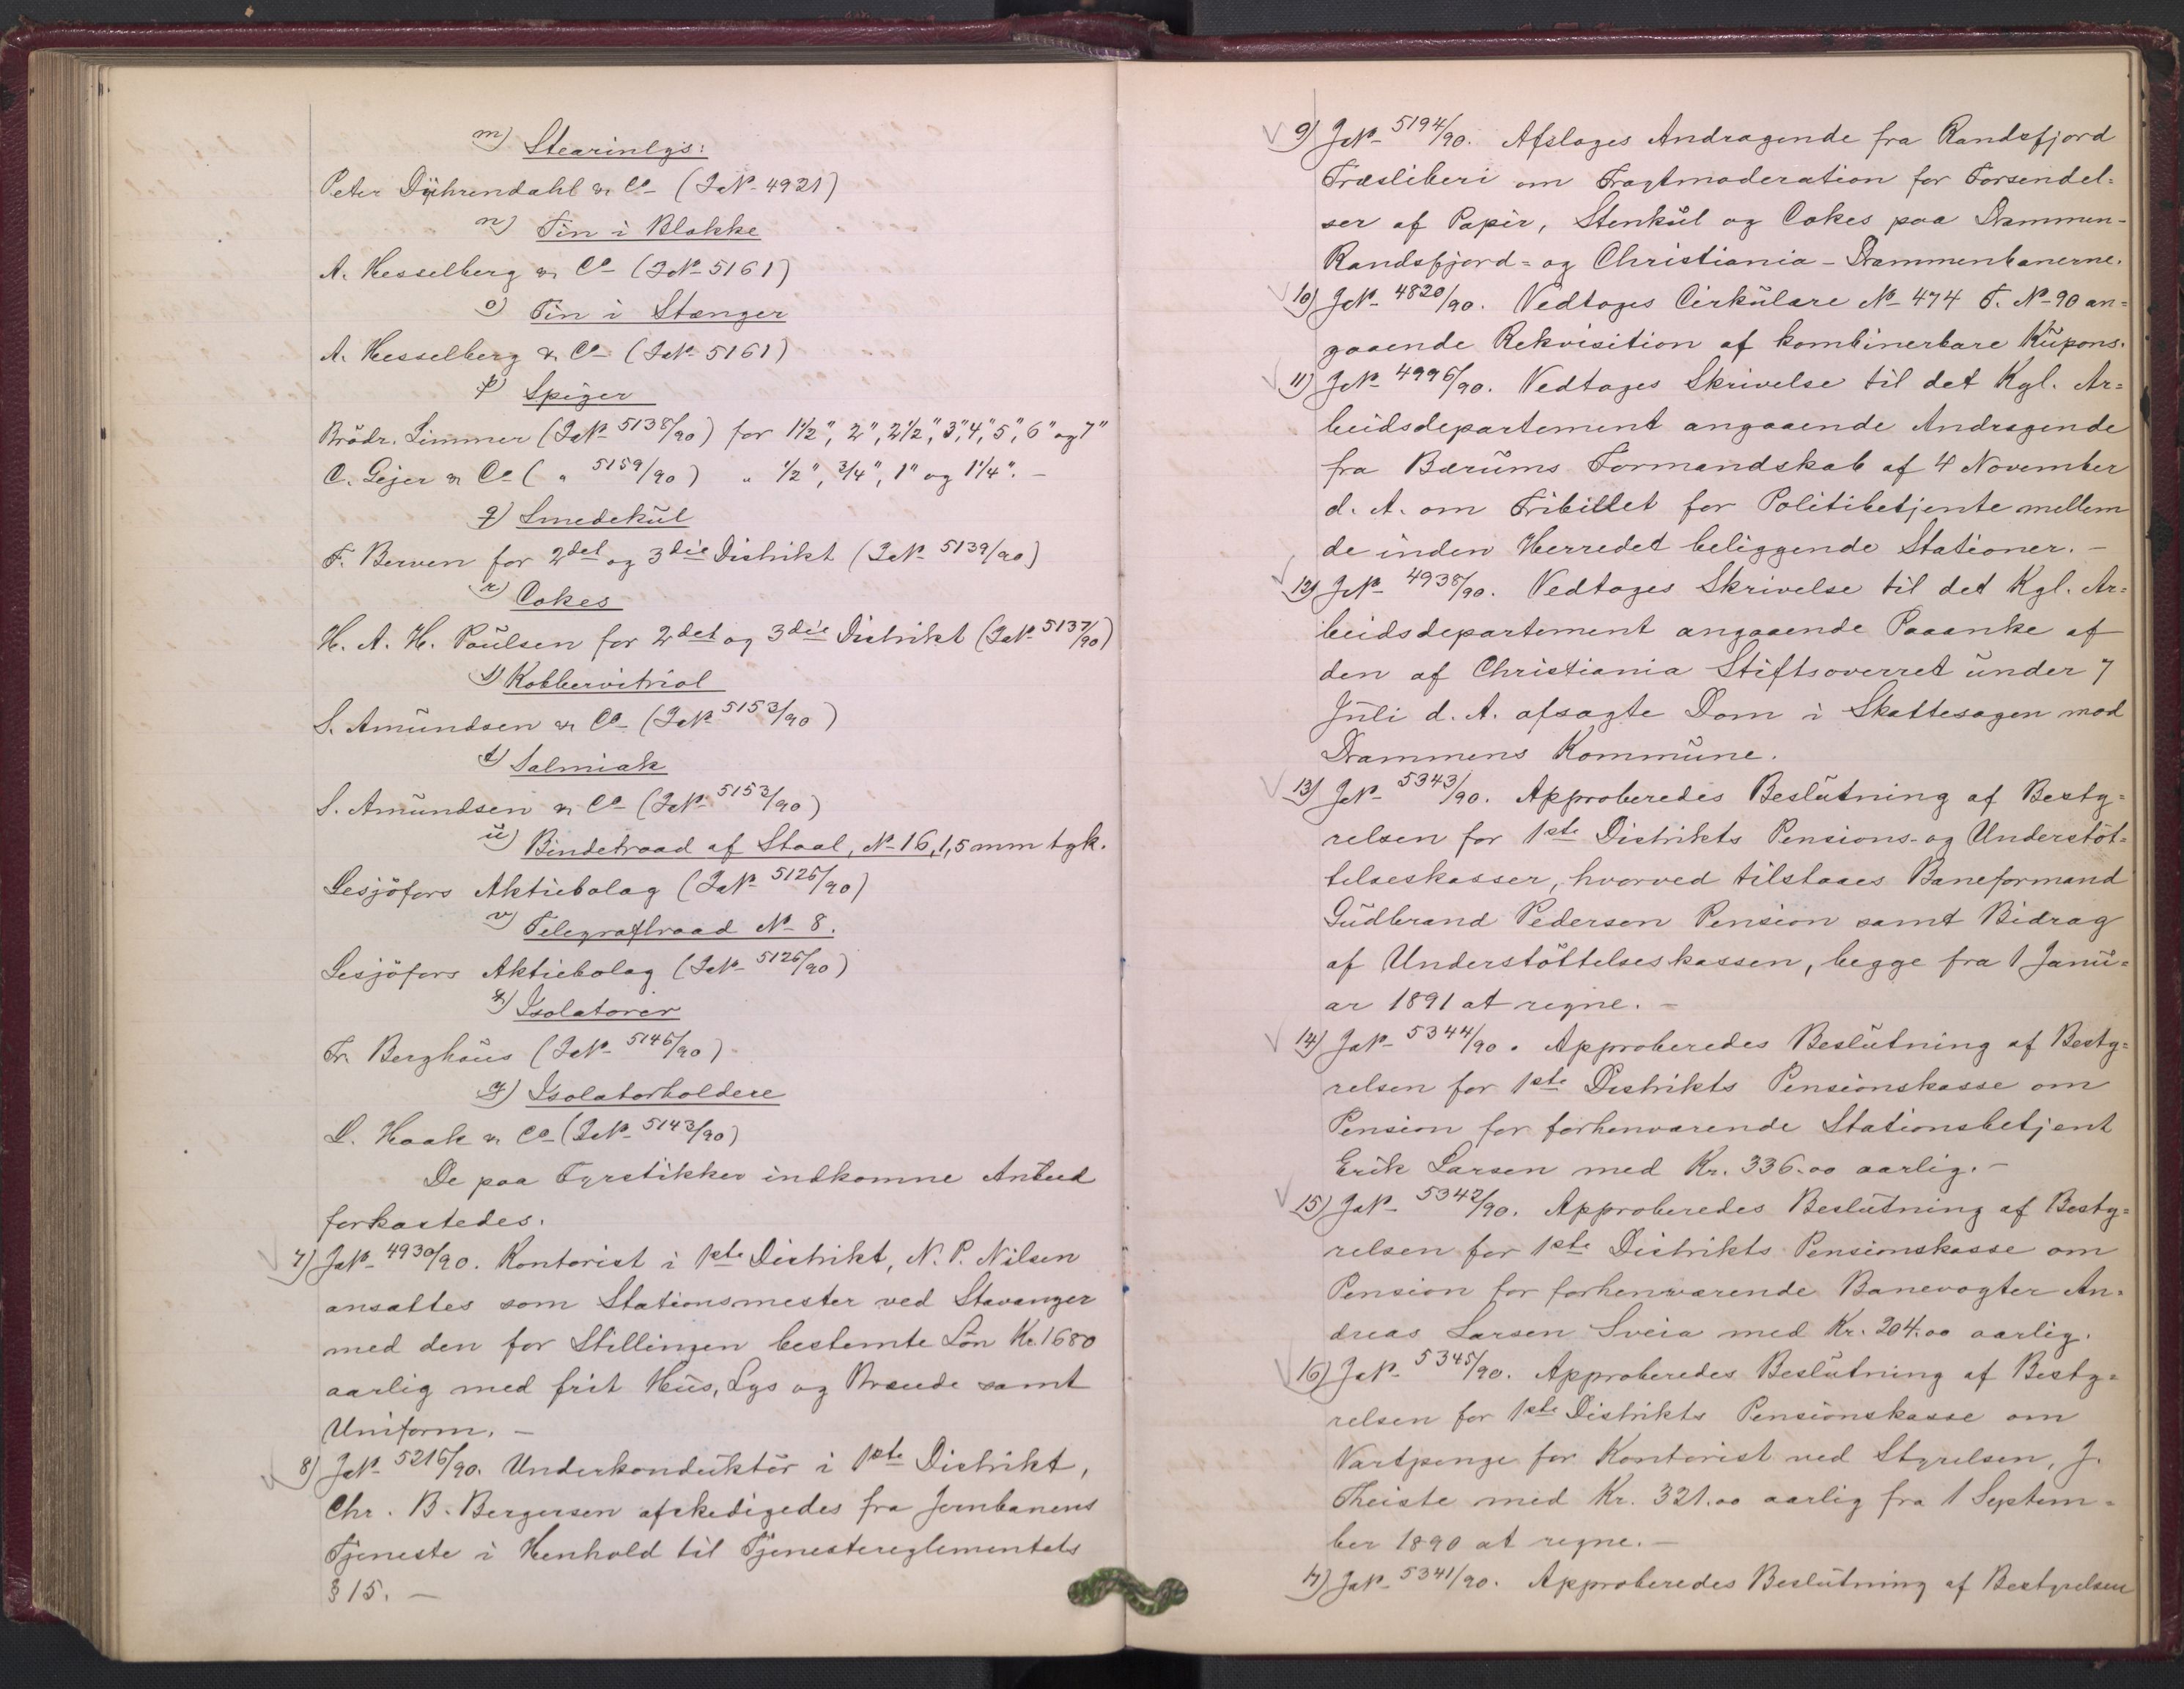 m) Stearinlys:
Peter Dührendahl & Co (JNo 4921)
n) Tin i Blokke
A. Hesselberg & Co (JNo 5161)
o) Tin i Stænger
A. Hesselberg & Co (JNo 5161)
p) Spiger
Brödr. Simmer (JNo 5138/90) for 1 1/2", 2", 2 1/2", 3", 4", 5", 6" og 7"
C. Gejer & Co ( " 5159/90) " 1/2", 3/4", 1" og 1 1/4". –
q) Smedekul
F. Berven for 2det og 3die Distrikt (JNo 5139/90)
r) Cokes
H. A. H. Paulsen for 2det og 3die Distrikt (JNo 5137/90)
s) Kobbervitriol
S. Amundsen & Co (JNo 5153/90)
t) Salmiak
S. Amundsen & Co (JNo 5153/90)
u) Bindetraad af Staal, No 16, 1,5 mm tyk.
Lesjöfors Aktiebolag (JNo 5126/90)
v) Telegraftraad No 8.
Lesjöfors Aktiebolag (JNo 5126/90)
x) Isolatorer
Fr. Berghaus (JNo 5146/90)
y) Isolatorholdere
L. Haak & Co (JNo 5143/90)
De paa Fyrstikker indkomne Anbud
forkastedes.
7) JNo 4930/90. Kontorist i 1ste Distrikt, N. P. Nilsen
ansattes som Stationsmester ved Stavanger
med den for Stillingen bestemte Lön Kr. 1680
aarlig med frit Hus, Lys og Brænde samt
Uniform. –
8) JNo 5216/90. Underkonduktör i 1ste Distrikt,
Chr. B. Bergersen afskedigedes fra Jernbanens
Tjeneste i Henhold til Tjenestereglementets
§ 15. –
9) JNo 5194/90. Afslages Andragende fra Randsfjord
Træsliberi om Fragtmoderation for Forsendel=
ser af Papir, Stenkul og Cokes paa Drammen-
Randsfjord= og Christiania-Drammenbanerne.
10) JNo 4820/90. Vedtages Cirkulære No 474 T. No 90 an=
gaaende Rekvisition af kombinerbare Kupons.
11) JNo 4996/90. Vedtages Skrivelse til det Kgl. Ar=
beidsdepartement angaaende Andragende
fra Bærums Formandskab af 4 November
d. A. om Fribillet for Politibetjente mellem
de inden Herredet beliggende Stationer. –
12) JNo 4938/90. Vedtages Skrivelse til det Kgl. Ar=
beidsdepartement angaaende Paaanke af
den af Christiania Stiftsoverret under 7
Juli d. A. afsagte Dom i Skattesagen mod
Drammens Kommune.
13) JNo 5343/90. Approberedes Beslutning af Besty=
relsen for 1ste Distrikts Pensions- og Understöt=
telseskasser, hvorved tilstaaes Baneformand
Gudbrand Pedersen Pension samt Bidrag
af Understöttelseskassen, begge fra 1 Janu=
ar 1891 at regne. –
14) JNo 5344/90. Approberedes Beslutning af Besty=
relsen for 1ste Distrikts Pensionskasse om
Pension for forhenværende Stationsbetjent
Erik Larsen med Kr. 336.00 aarlig. –
15) JNo 5342/90. Approberedes Beslutning af Besty=
relsen for 1ste Distrikts Pensionskasse om
Pension for forhenværende Banevogter An=
dreas Larsen Sveia med Kr. 204.00 aarlig.
16) JNo 5345/90. Approberedes Beslutning af Besty=
relsen for 1ste Distrikts Pensionskasse om
Vartpenge for Kontorist ved Styrelsen, J.
Theiste med Kr. 321.00 aarlig fra 1 Septem=
ber 1890 at regne. –
17) JNo 5341/90. Approberedes Beslutning af Bestyrelsen